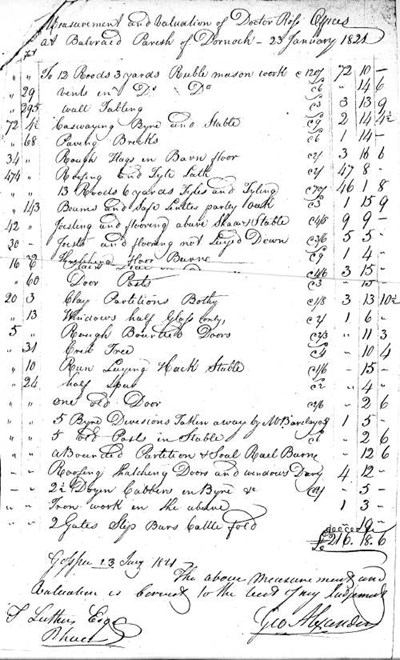 Measurement and Valuation of Doctor Ross Offices
At Balvraid Parish of Dornoch - 23 January 1821
" " To 12 Roods 3 yards Ruble mason work @ 120/ 72 10 -
" 29 vents in Do Do @6 " 14 6
" 295 wall Tabling @3 3 13 9
72 4½ Caswaying Byre and Stable @9 2 14 4½
" 68 Paving Bricks @6 1 14 -
34 " Rough Flags in Barn floor @2/ 3 16 6
474 " Roofing and Tyle Lath @2/ 47 8 -
" " 13 Roods 6 yards Tyles and Tyling 46 1 8
" 143 Beams and Safe Lintles party @3 1 15 9
42 " Joisting and flooring above Stable @4/6 9 9 -
20 - Joists and flooring not Layed Down 5 5 -
16 Floor Barne @9 1 4 -
@4/6 3 15 -
" 60 Door Posts @3 - 15 -
20 3 Clay Partitions Bothy 3 13 10½
" 13 Windows half Glass only, @2/ 1 6 -
5 " Rough Bounted Doors @2/3 " 11 3
" 31 Crub Tree @4 - 10 4
" 10 Run Laying Hack Stable @1/6 - 15 -
" 24 half Spar @2 " 4 -
" " one old Door @2/6 - 2 6
" " 5 Byre Divisions Taken away by McBarclay 1 5 -
" " 5 Old Posts in Stable - 2 6
" " a Bounted Partition & Barne " 12 6
- - Roofing thatching Doors and windows 4 12 -
- - 2½ in Byre @2/ - 5 -
" " Iron work in the above 1 3 -
- - 2 Gates Slip Bars Cattle fold - 19 -
£216. 18. 6
1821
The above measurement and
Valuation is correct to the best of my Judgement
Geo Alexander